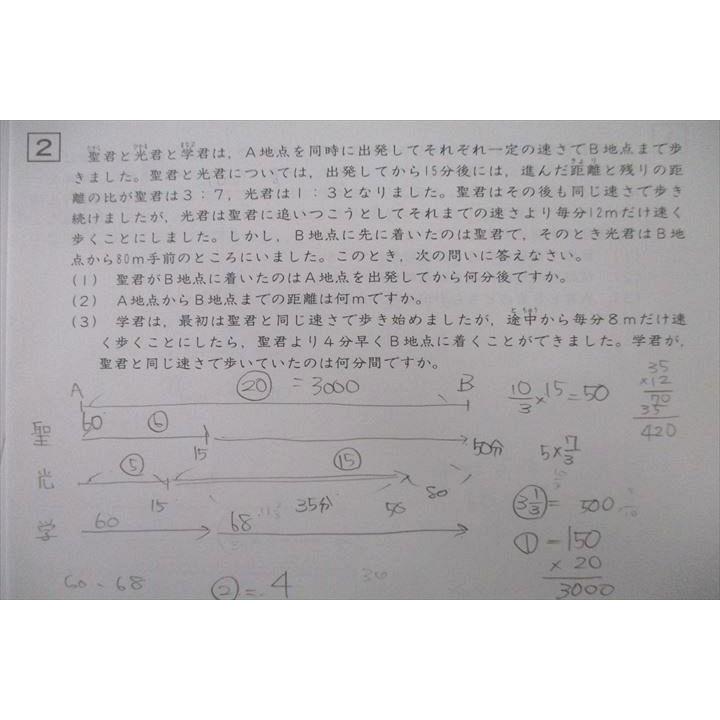 2
聖君と光君と学君は，Ａ地点を同時に出発してそれぞれ一定の速さでＢ地点まで歩
きました。聖君と光君については，出発してから15分後には，進んだ距離と残りの距
離の比が聖君は３：７，光君は１：３となりました。聖君はその後も同じ速さで歩き
続けましたが，光君は聖君に追いつこうとしてそれまでの速さより毎分12ｍだけ速く
歩くことにしました。しかし，Ｂ地点に先に着いたのは聖君で，そのとき光君はＢ地
点から80ｍ手前のところにいました。このとき，次の問いに答えなさい。
(1) 聖君がＢ地点に着いたのはＡ地点を出発してから何分後ですか。
(2) Ａ地点からＢ地点までの距離は何ｍですか。
(3) 学君は，最初は聖君と同じ速さで歩き始めましたが，途中から毎分８ｍだけ速
く歩くことにしたら，聖君より４分早くＢ地点に着くことができました。学君が，
聖君と同じ速さで歩いていたのは何分間ですか。
A ⑳ = 3000 B
10/3 × 15 = 50
35
×12
70
35
420
60 ⑥
聖 15 50分
5 × 7/3
⑤ ⑮
光 15 35分 50 80
3 1/3 = 500
学 60 68
① = 150
× 20
3000
60 - 68 ② = 4